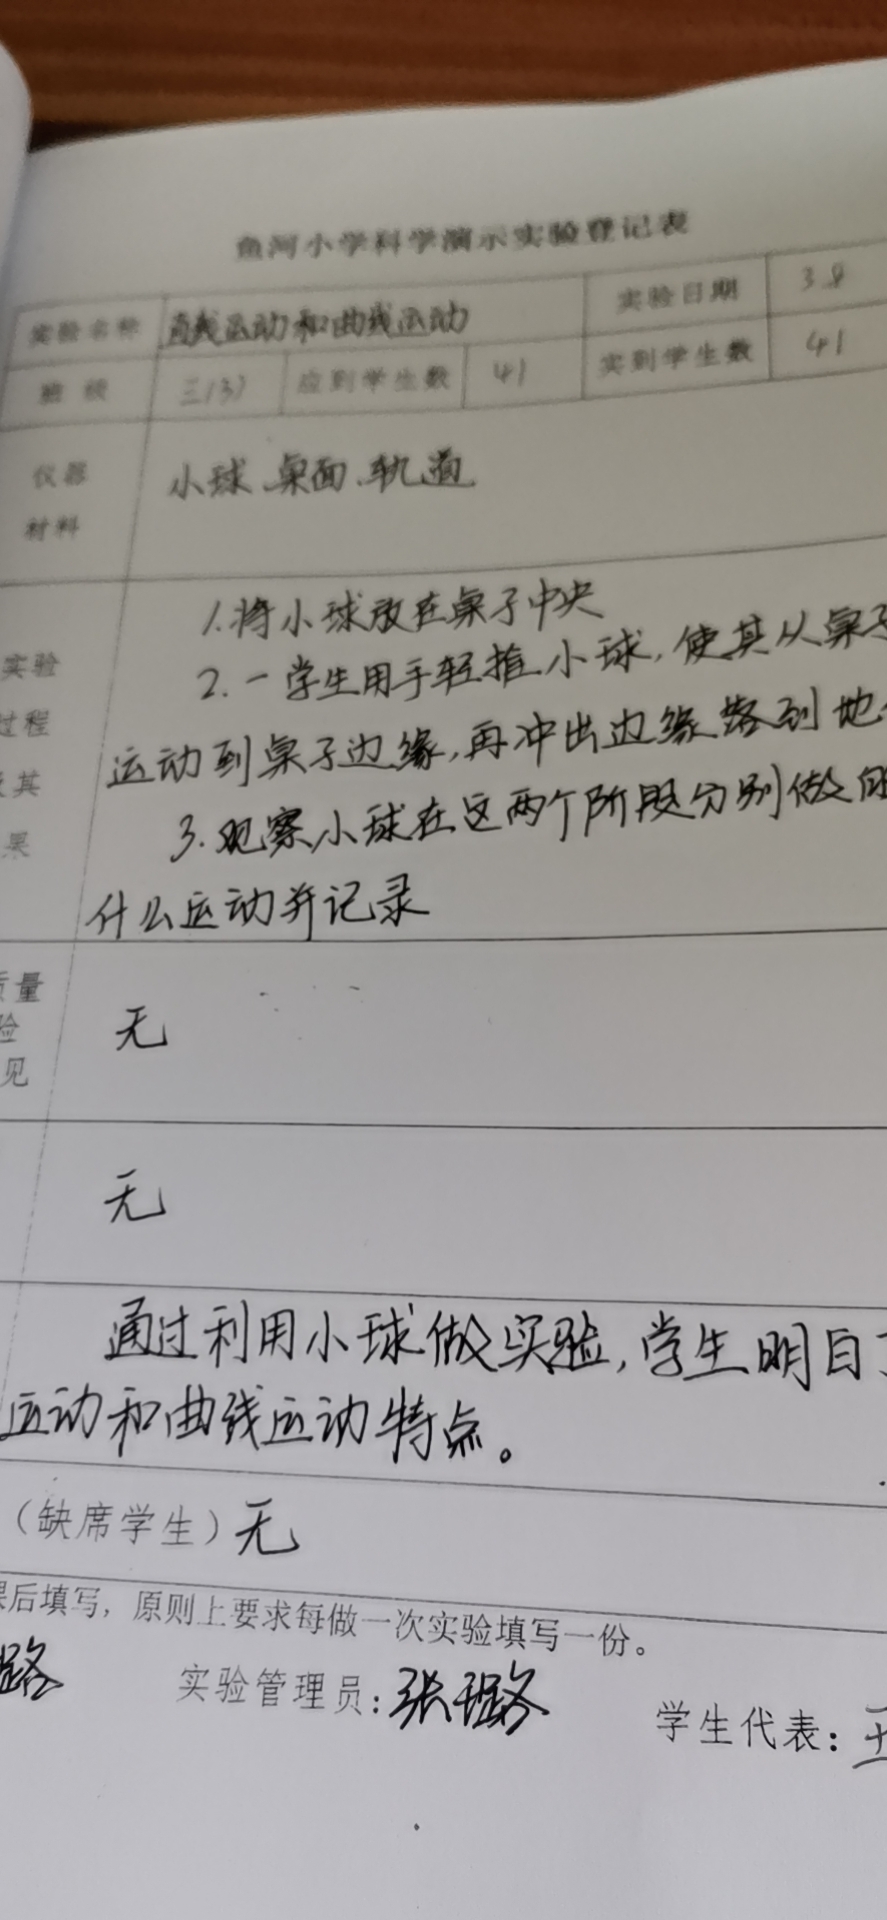 鱼河小学科学演示实验登记表
实验名称 直线运动和曲线运动 实验日期 3.8
班级 三(3) 应到学生数 41 实到学生数 41
仪器
材料
小球、桌面、轨道
1.将小球放在桌子中央
实验 2.一学生用手轻推小球,使其从桌子
过程 运动到桌子边缘,再冲出边缘落到地
其 3.观察小球在这两个阶段分别做的
果
什么运动并记录
质量
验 无
见
无
通过利用小球做实验,学生明白了
运动和曲线运动特点。
(缺席学生)无
课后填写,原则上要求每做一次实验填写一份。
路 实验管理员:张璐 学生代表:王